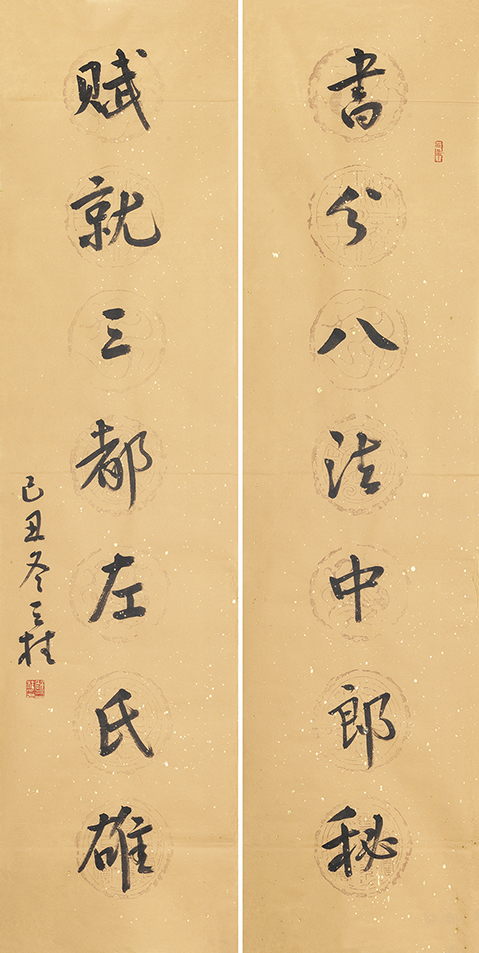 書分八法中郎秘
賦就三都左氏雄
己丑冬三桂